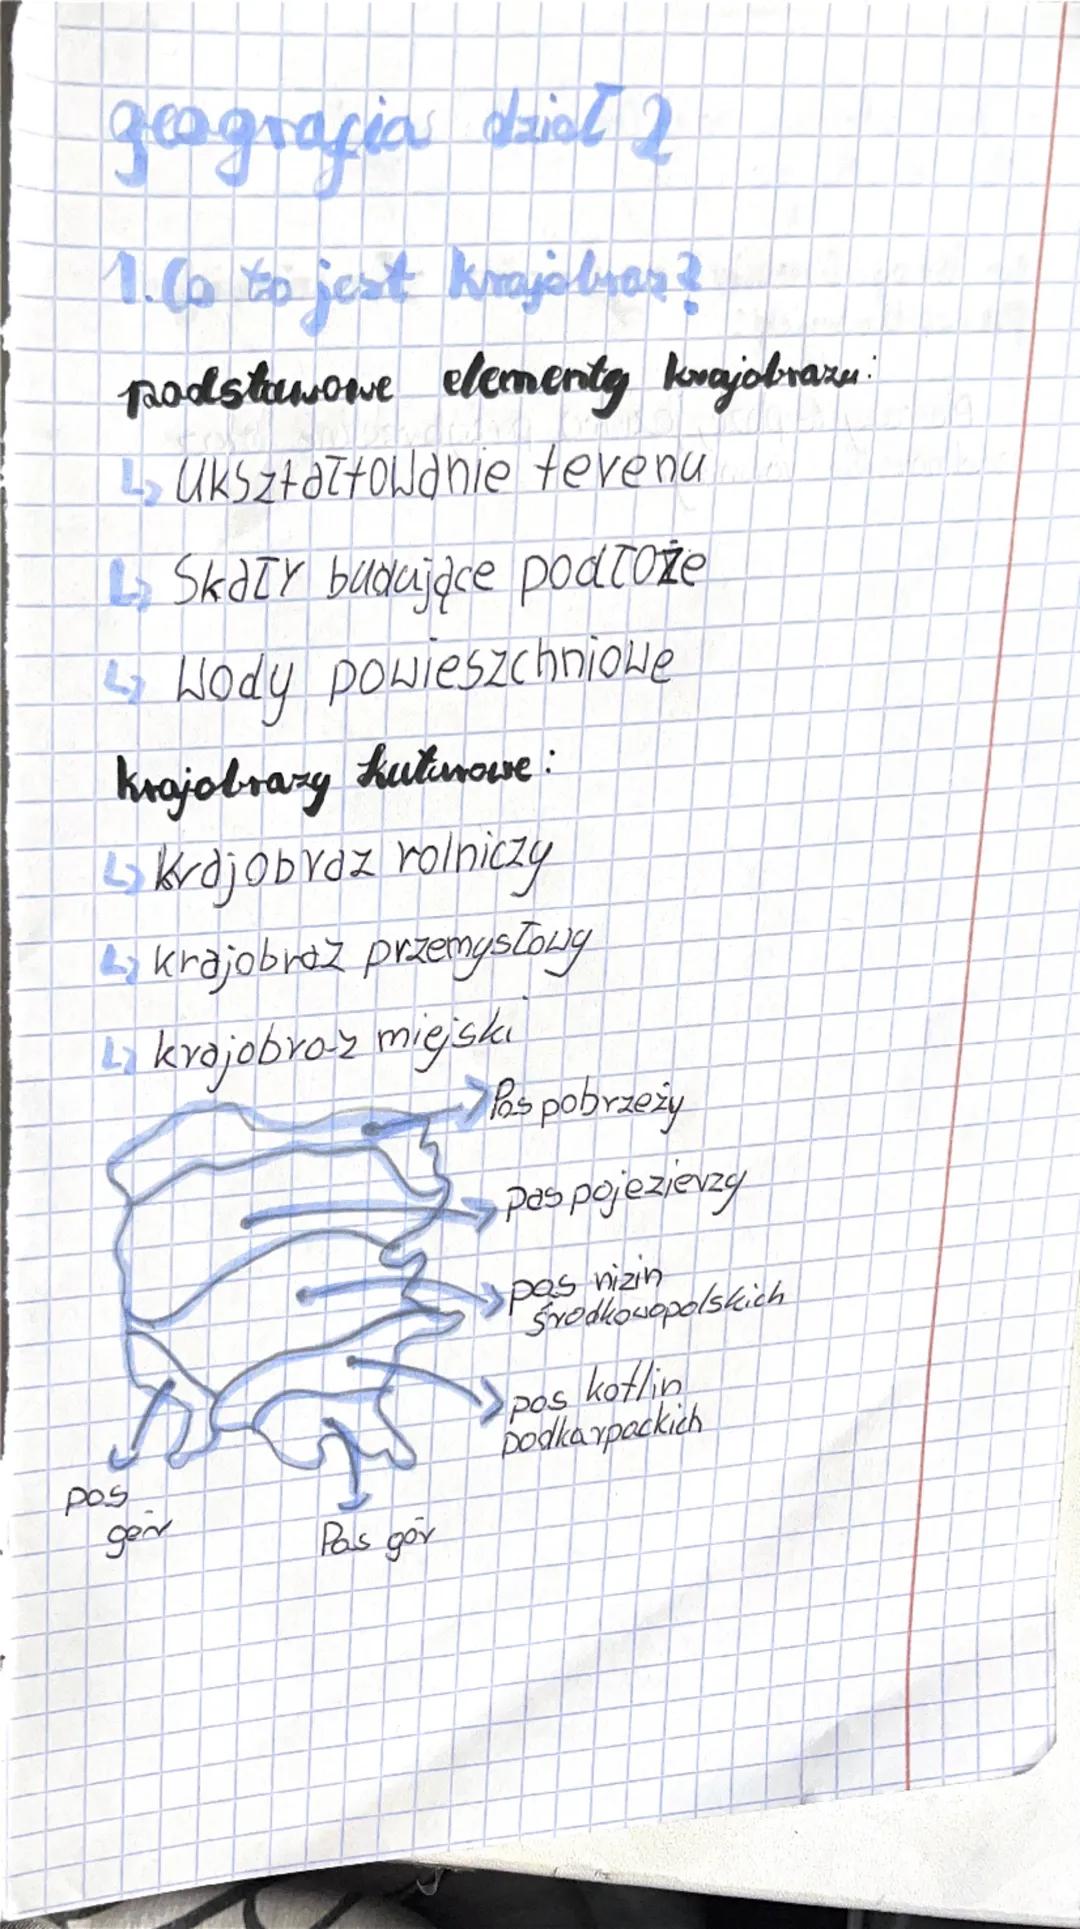 geografia dział 2
1. Co to jest krajobraz?
podstawowe elementy krajobrazu:
↳ Ukształtowanie terenu
↳ Skały budujące podłoże
↳ Wody powieszchniowe
krajobrazy kuturowe:
↳ krajobraz rolniczy
↳ krajobraz przemysłowy
↳ krajobraz miejski
Pas pobrzeży
pas pojezierzy
pas nizin
środkowopolskich
pas kotlin
podkarpackich
pas
gór
Pas gór